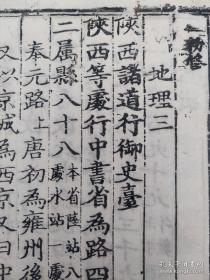 地理三
陝西諸道行御史臺
陝西等處行中書省為路四
二屬縣八十八 本省陸站八
處水站一處
奉元路上唐初為雍州後
又以京城為西京又曰中